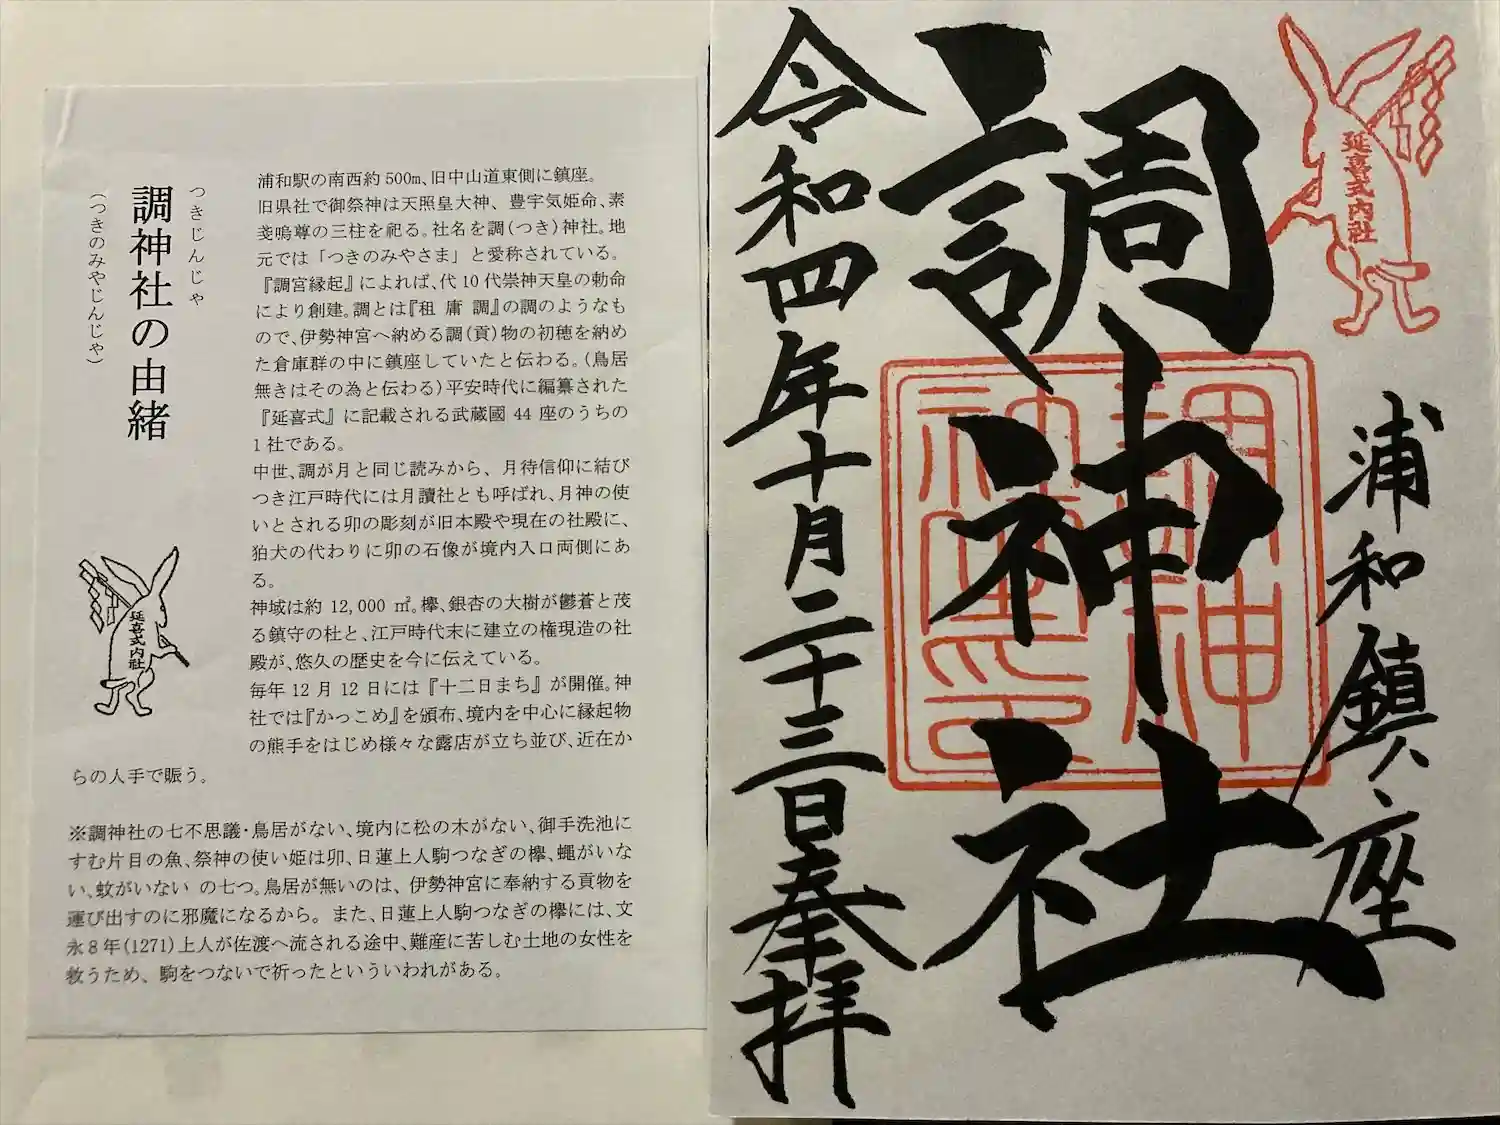 つきじんじゃ
調神社の由緒
(つきのみやじんじゃ)
延喜式内社
浦和駅の南西約500m、旧中山道東側に鎮座。
旧県社で御祭神は天照皇大神、豊宇気姫命、素
戔嗚尊の三柱を祀る。社名を調(つき)神社。地
元では「つきのみやさま」と愛称されている。
『調宮縁起』によれば、代10代崇神天皇の勅命
により創建。調とは『租 庸 調』の調のようなも
ので、伊勢神宮へ納める調(貢)物の初穂を納め
た倉庫群の中に鎮座していたと伝わる。(鳥居
無きはその為と伝わる)平安時代に編纂された
『延喜式』に記載される武蔵國44座のうちの
1社である。
中世、調が月と同じ読みから、月待信仰に結び
つき江戸時代には月讀社とも呼ばれ、月神の使
いとされる卯の彫刻が旧本殿や現在の社殿に、
狛犬の代わりに卯の石像が境内入口両側にあ
る。
神域は約12,000㎡。欅、銀杏の大樹が鬱蒼と茂
る鎮守の杜と、江戸時代末に建立の権現造の社
殿が、悠久の歴史を今に伝えている。
毎年12月12日には『十二日まち』が開催。神
社では『かっこめ』を頒布、境内を中心に縁起物
の熊手をはじめ様々な露店が立ち並び、近在か
らの人手で賑う。
※調神社の七不思議・鳥居がない、境内に松の木がない、御手洗池に
すむ片目の魚、祭神の使い姫は卯、日蓮上人駒つなぎの欅、蠅がいな
い、蚊がいない の七つ。鳥居が無いのは、伊勢神宮に奉納する貢物を
運び出すのに邪魔になるから。また、日蓮上人駒つなぎの欅には、文
永8年(1271)上人が佐渡へ流される途中、難産に苦しむ土地の女性を
救うため、駒をつないで祈ったといういわれがある。
延喜式内社
浦和鎮ノ座
調神社
調神
社之印
令和四年十月二十三日奉拝